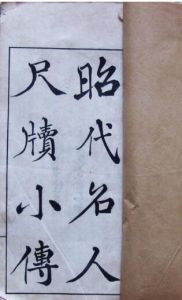 昭代名人
尺牘小傳